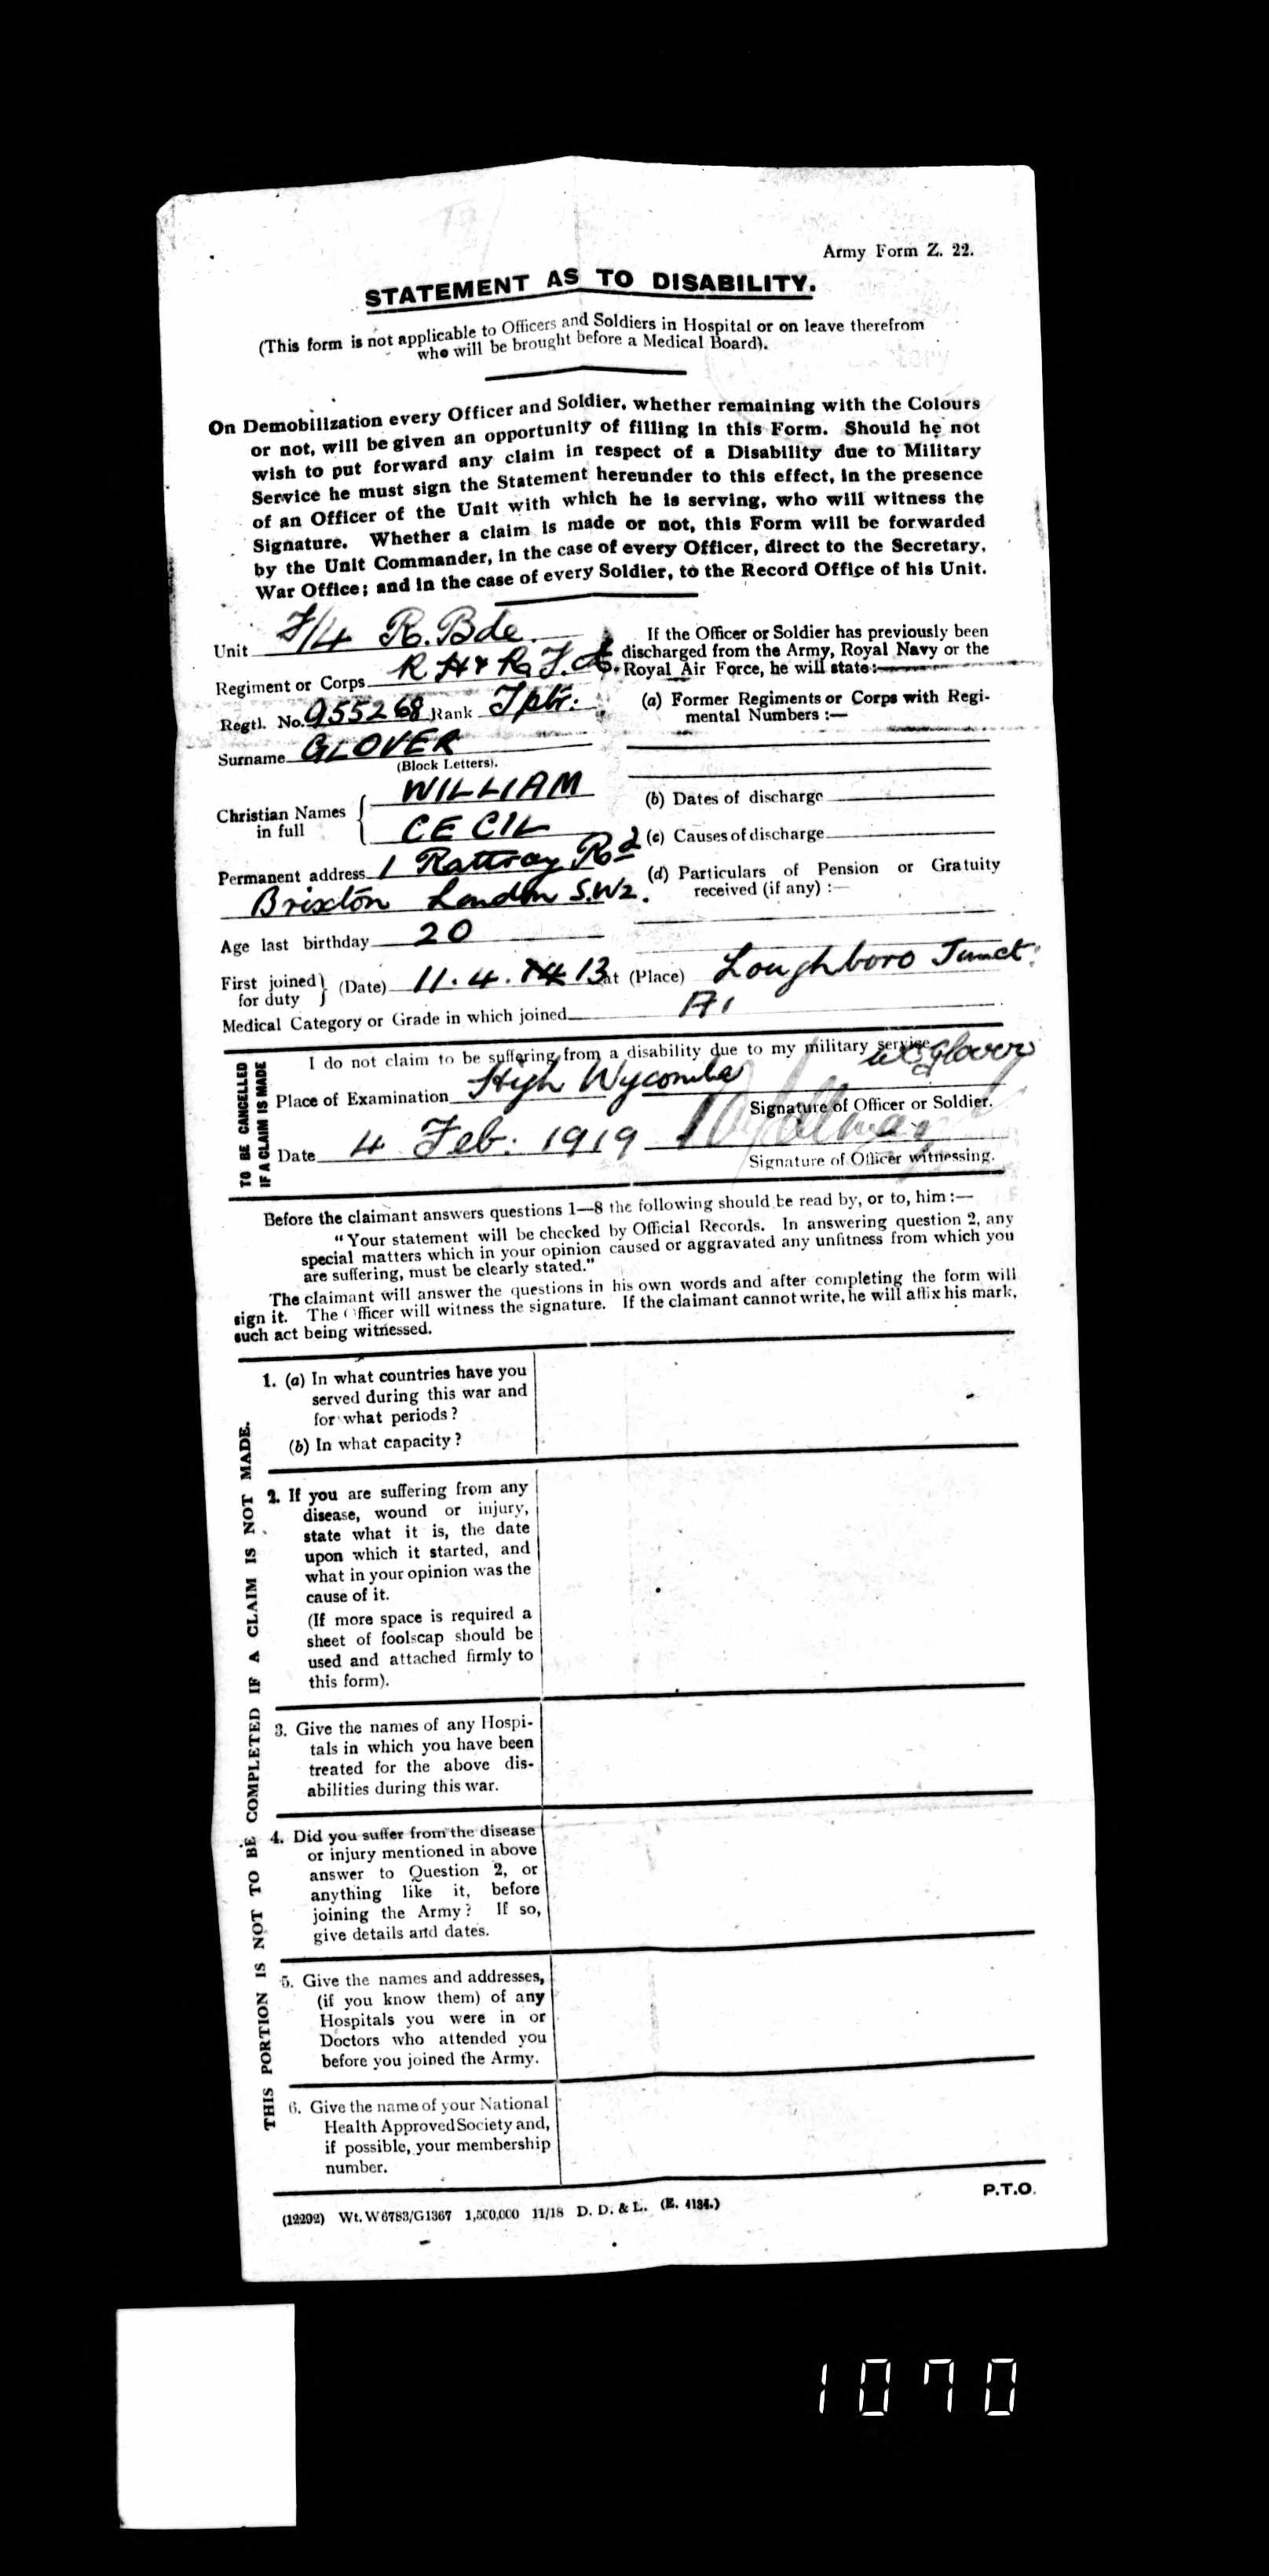 Army Form Z. 22.
STATEMENT AS TO DISABILITY.
(This form is not applicable to Officers and Soldiers in Hospital or on leave therefrom
who will be brought before a Medical Board).
On Demobilization every Officer and Soldier, whether remaining with the Colours
or not, will be given an opportunity of filling in this Form. Should he not
wish to put forward any claim in respect of a Disability due to Military
Service he must sign the Statement hereunder to this effect, in the presence
of an Officer of the Unit with which he is serving, who will witness the
Signature. Whether a claim is made or not, this Form will be forwarded
by the Unit Commander, in the case of every Officer, direct to the Secretary,
War Office; and in the case of every Soldier, to the Record Office of his Unit.
Unit F/4 R. Bde.
Regiment or Corps R H & R.F.A.
Regtl. No. 955268 Rank Tptr.
Surname GLOVER
(Block Letters).
Christian Names in full WILLIAM
CECIL
Permanent address 1 Rattray Rd
Brixton London S.W2.
Age last birthday 20
If the Officer or Soldier has previously been
discharged from the Army, Royal Navy or the
Royal Air Force, he will state:—
(a) Former Regiments or Corps with Regi-
mental Numbers :—
(b) Dates of discharge
(c) Causes of discharge
(d) Particulars of Pension or Gratuity
received (if any) :—
First joined for duty (Date) 11.4.14 13 at (Place) Loughboro Junct.
Medical Category or Grade in which joined A1
TO BE CANCELLED
IF A CLAIM IS MADE
I do not claim to be suffering from a disability due to my military service
W C Glover
Place of Examination High Wycombe
Signature of Officer or Soldier.
Date 4 Feb. 1919
Signature of Officer witnessing.
Before the claimant answers questions 1—8 the following should be read by, or to, him :—
"Your statement will be checked by Official Records. In answering question 2, any
special matters which in your opinion caused or aggravated any unfitness from which you
are suffering, must be clearly stated."
The claimant will answer the questions in his own words and after completing the form will
sign it. The Officer will witness the signature. If the claimant cannot write, he will affix his mark,
such act being witnessed.
THIS PORTION IS NOT TO BE COMPLETED IF A CLAIM IS NOT MADE.
1. (a) In what countries have you
served during this war and
for what periods?
(b) In what capacity?
2. If you are suffering from any
disease, wound or injury,
state what it is, the date
upon which it started, and
what in your opinion was the
cause of it.
(If more space is required a
sheet of foolscap should be
used and attached firmly to
this form).
3. Give the names of any Hospi-
tals in which you have been
treated for the above dis-
abilities during this war.
4. Did you suffer from the disease
or injury mentioned in above
answer to Question 2, or
anything like it, before
joining the Army? If so,
give details and dates.
5. Give the names and addresses,
(if you know them) of any
Hospitals you were in or
Doctors who attended you
before you joined the Army.
6. Give the name of your National
Health Approved Society and,
if possible, your membership
number.
P.T.O.
(12292) Wt. W6783/G1367 1,500,000 11/18 D. D. & L. (E. 4134.)
1070